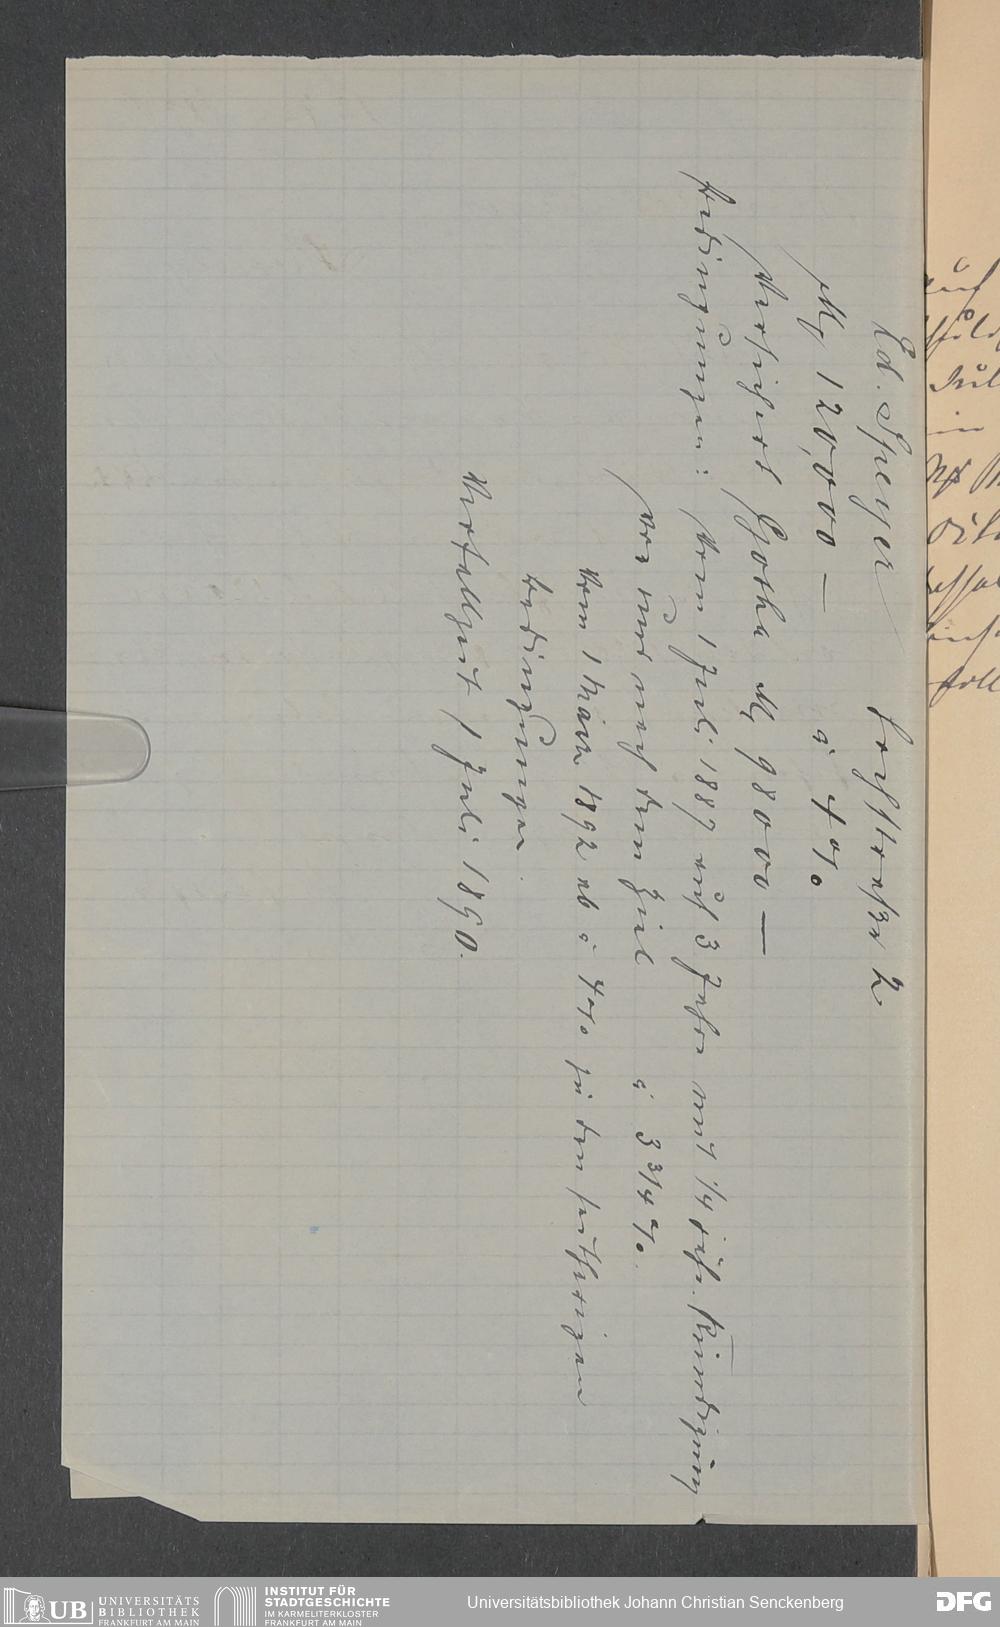 Ed. Speyer Hochstraße 2
M 120,000 — à 4 %
Versichert Gotha M 98000 —
Bedingungen: vom 1 Juli 1889 auf 3 Jahre mit 1/4 jähr. Kündigung
vor und nach dem Ziel à 3 3/4 %.
vom 1 März 1892 ab à 4 % zu den seitherigen
Bedingungen.
1 Juli 1890.
auf
in
UB
UNIVERSITÄTS
BIBLIOTHEK
FRANKFURT AM MAIN
INSTITUT FÜR
STADTGESCHICHTE
IM KARMELITERKLOSTER
FRANKFURT AM MAIN
Universitätsbibliothek Johann Christian Senckenberg
DFG